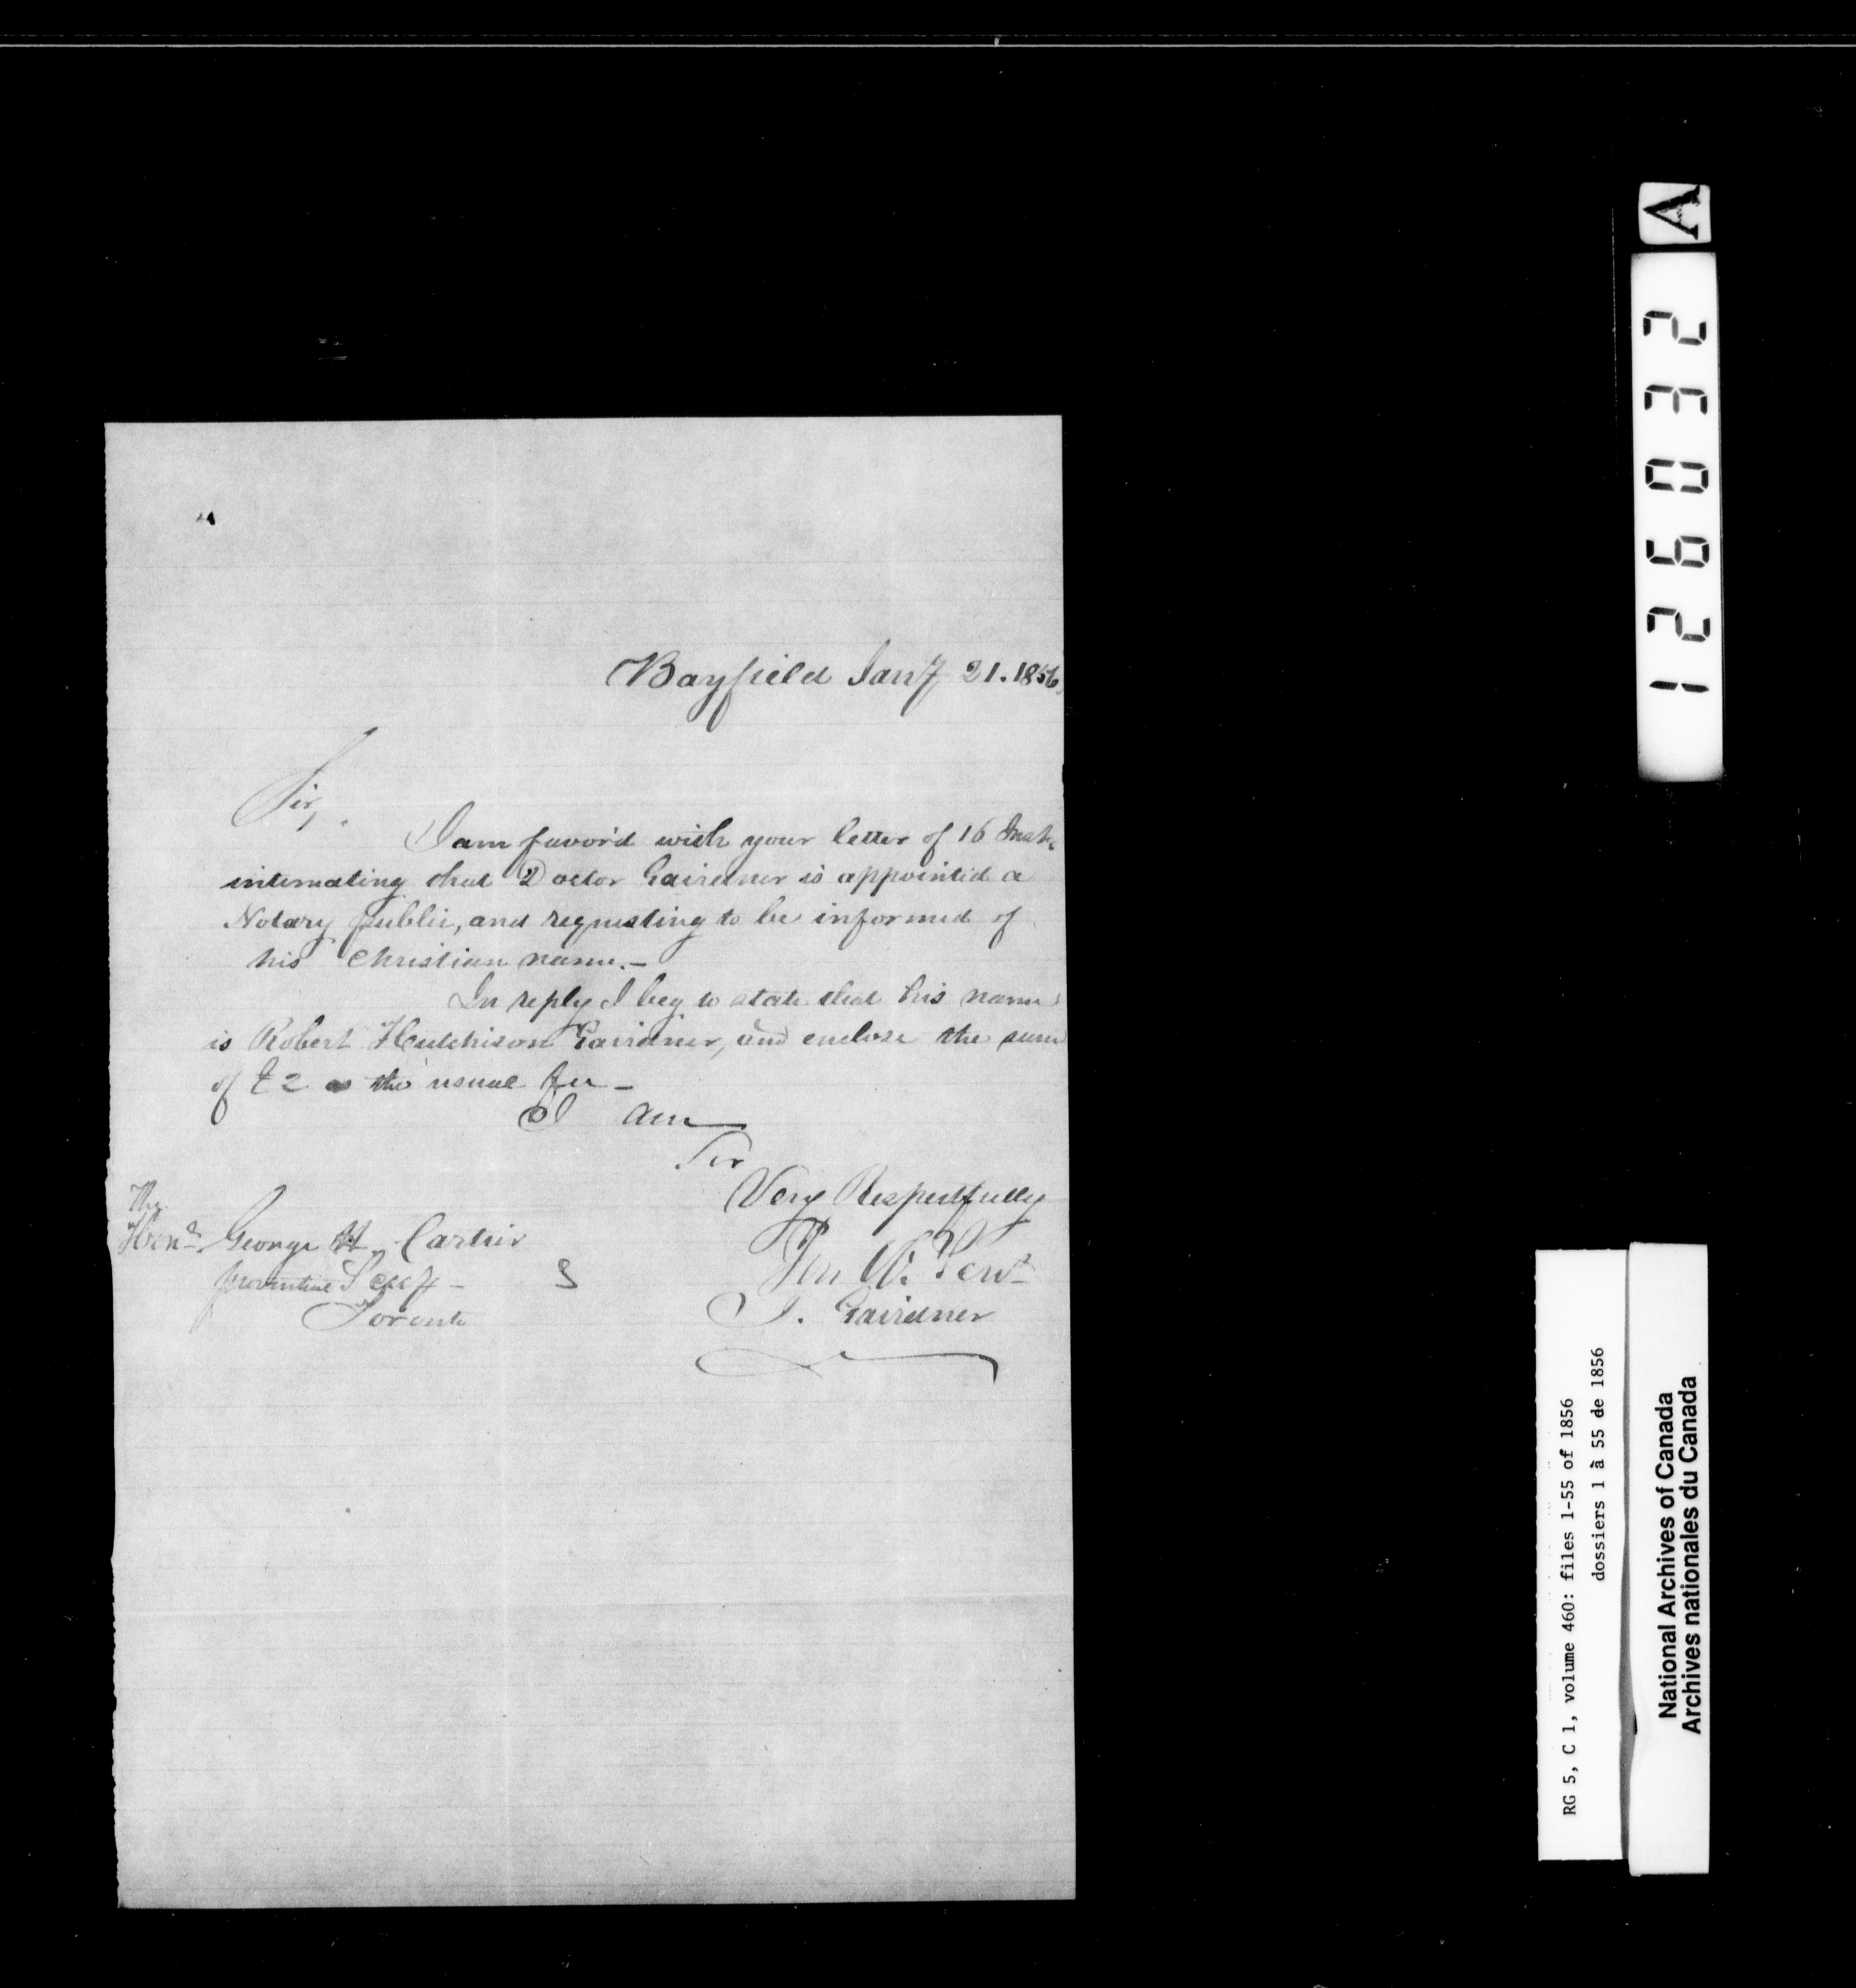 Bayfield Jany 21. 1856
Sir,
I am favor'd with your letter of 16 Inst.
intimating that Doctor Gairdner is appointed a
Notary public, and requesting to be informed of
his Christian name.—
In reply I beg to state that his name
is Robert Hutchison Gairdner, and enclose the sum
of £2 as the usual fee—
I am
Sir
Very Respectfully
The
Honᵈ George Cartier
provincial Secy—
Toronto
Servᵗ
J. Gairdner
A
126032
RG 5, C 1, volume 460: files 1-55 of 1856
dossiers 1 à 55 de 1856
National Archives of Canada
Archives nationales du Canada